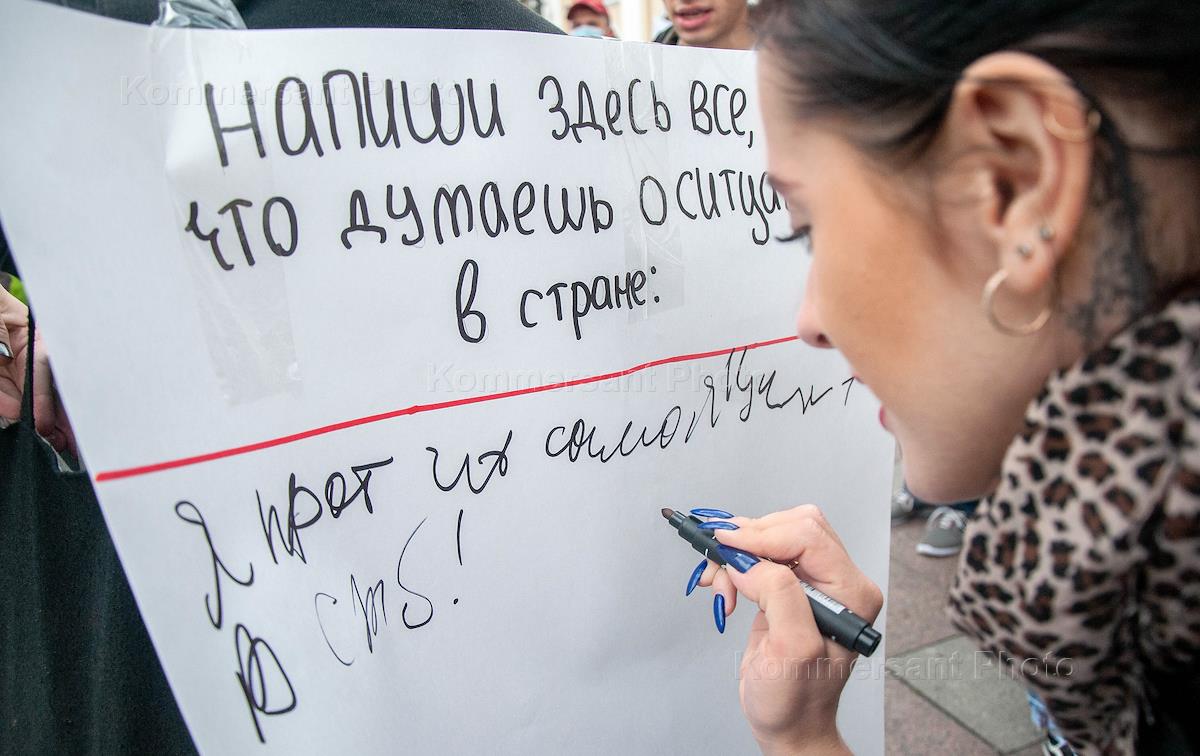 Kommersant Photo
Напиши здесь все,
что думаешь о ситуа
в стране:
Kommersant Photo
Я прот их
сть!
Kommersant Photo